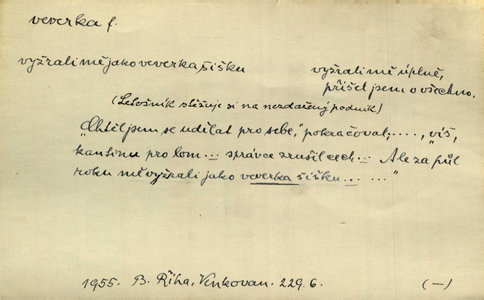 veverka f.
vyžrali mě jako veverka šišku
vyžrali mě úplně,
přišel jsem o všechno.
(Letošník stěžuje si na nezdařený podnik)
„Chtěl jsem se udělat pro sebe,” pokračoval; ...., „víš,
kantinu pro lom ... správce zrušil cech ... Ale za půl
roku mě vyžrali jako veverka šišku ... ....”
1955. B. Říha, Venkovan. 229.6. (—)